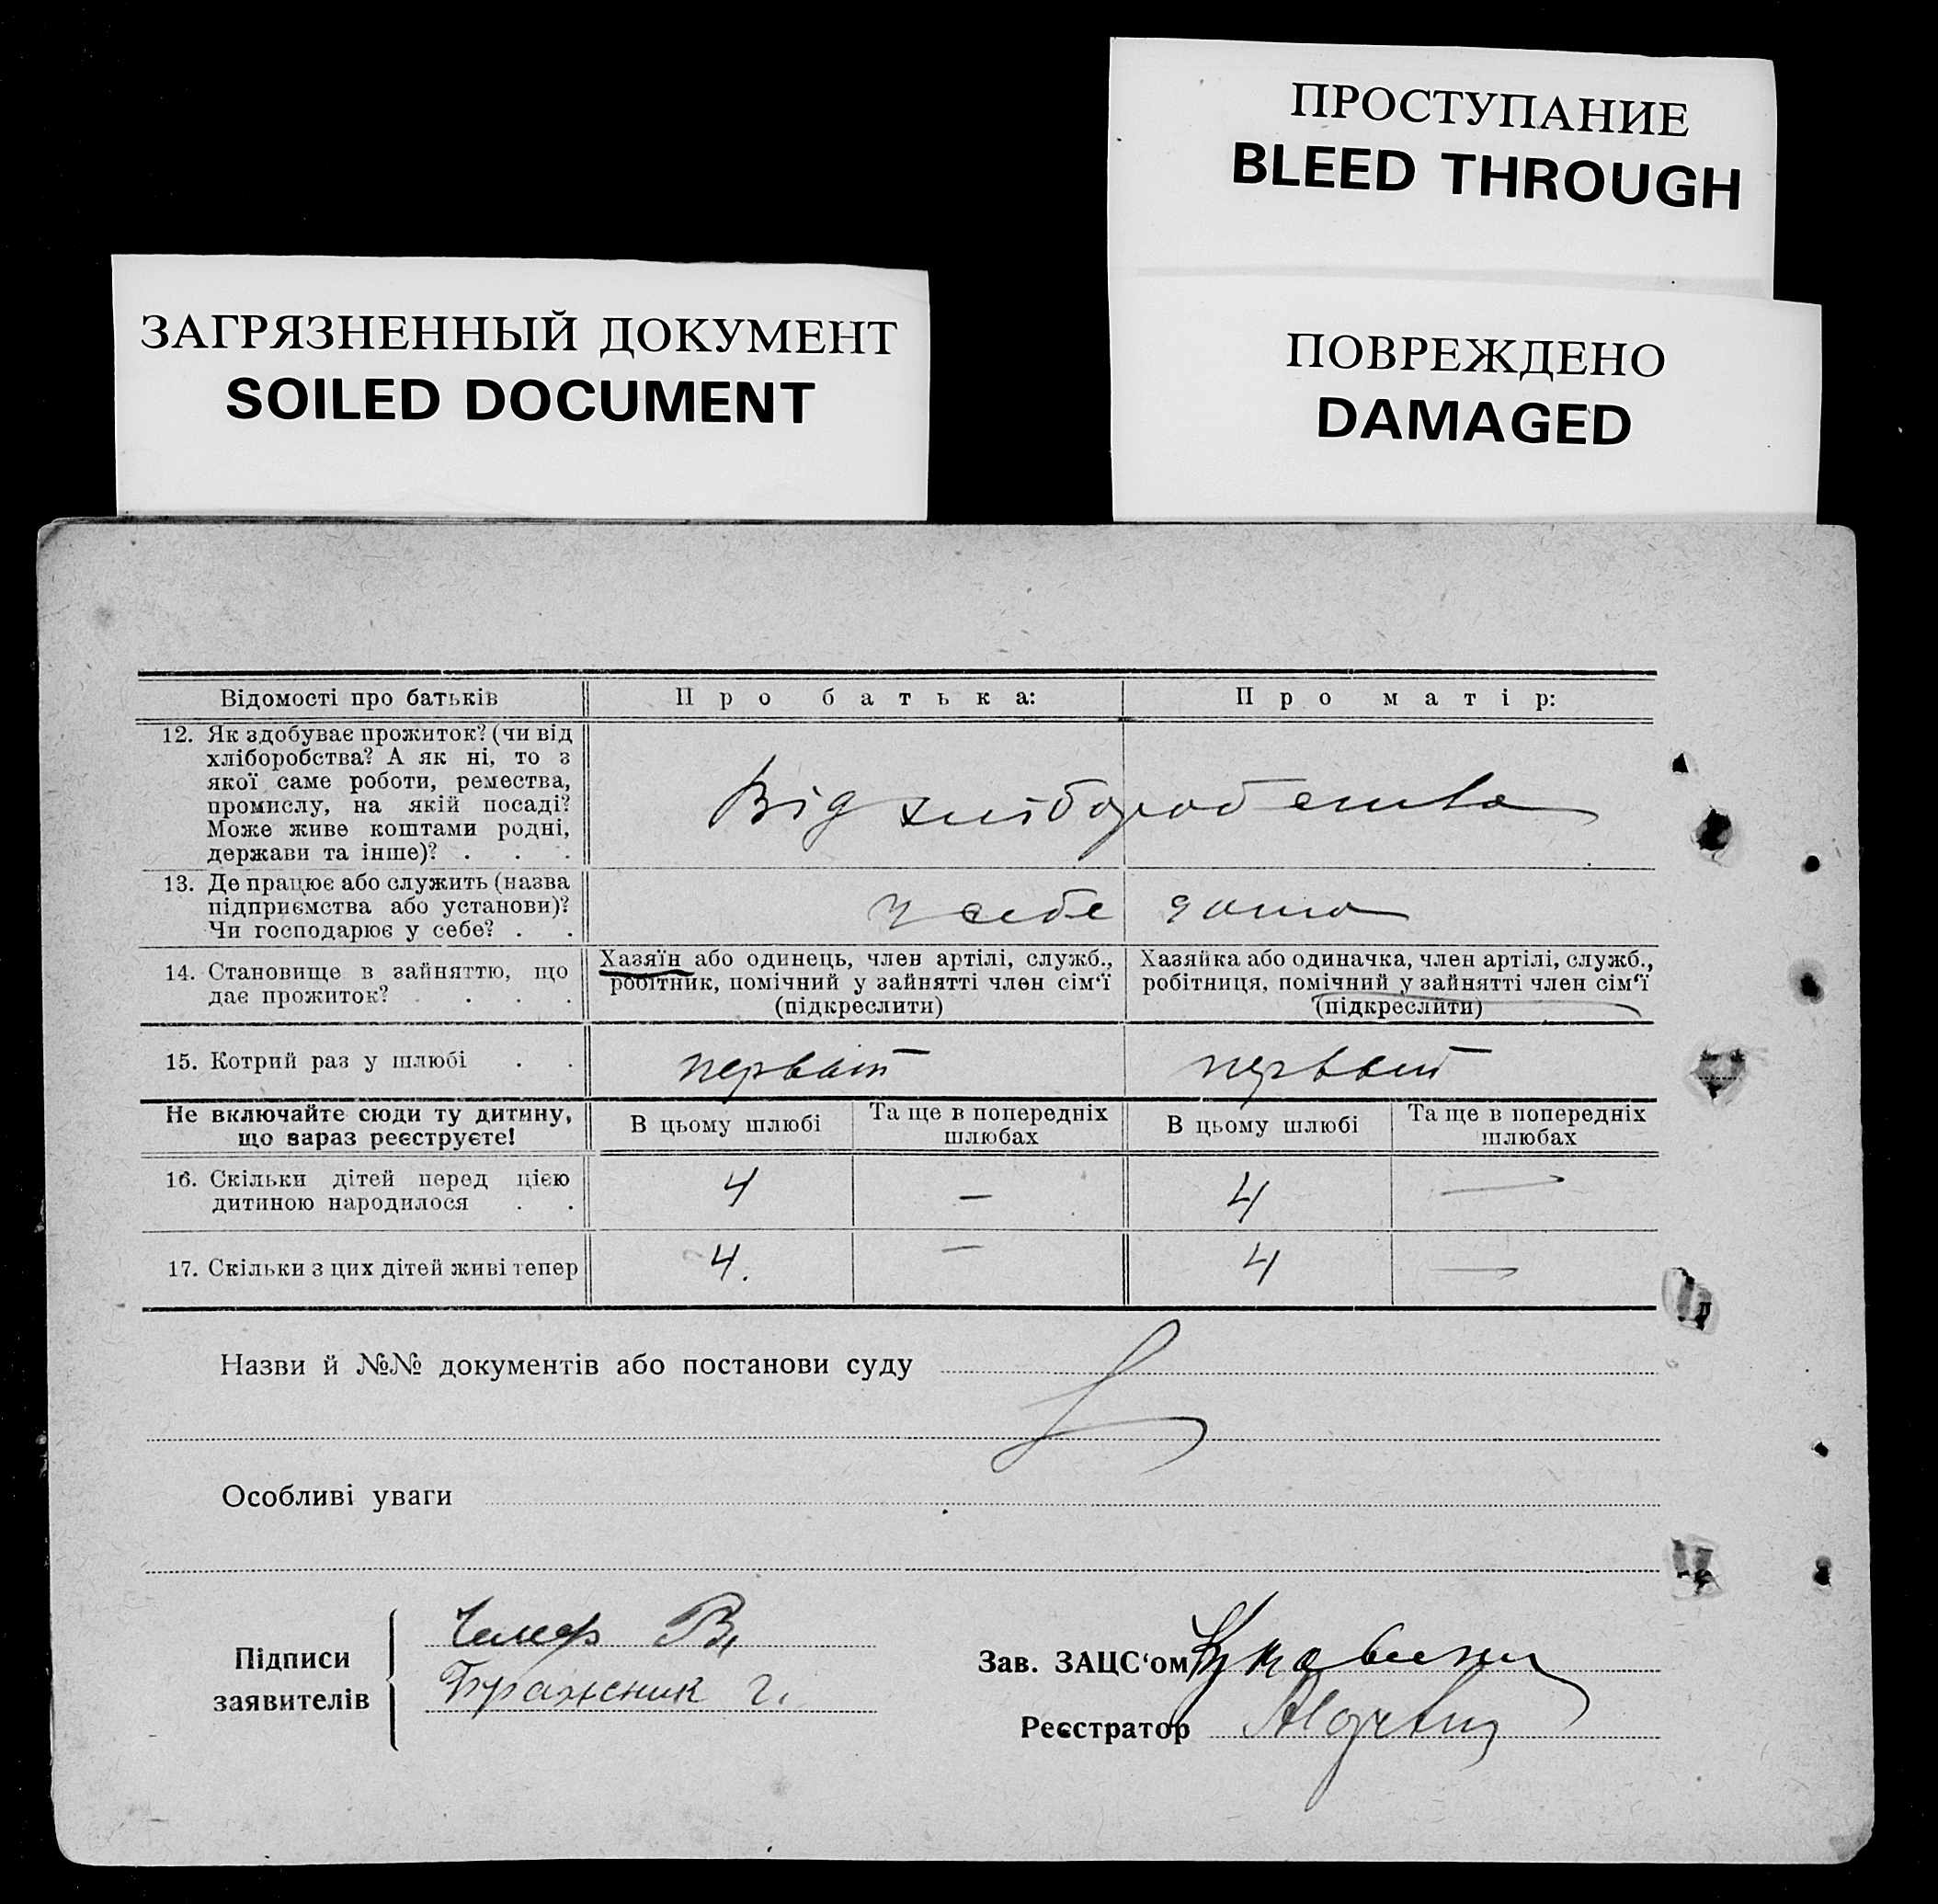 ПРОСТУПАНИЕ
BLEED THROUGH
ЗАГРЯЗНЕННЫЙ ДОКУМЕНТ
SOILED DOCUMENT
ПОВРЕЖДЕНО
DAMAGED
Відомості про батьків
Про батька:
Про матір:
12. Як здобуває прожиток? (чи від
хліборобства? А як ні, то з
якої саме роботи, ремества,
промислу, на якій посаді?
Може живе коштами родні,
держави та інше)? . . .
Від хліборобства
13. Де працює або служить (назва
підприємства або установи)?
Чи господарює у себе? . .
у себе дома
14. Становище в зайняттю, що
дає прожиток? . . . .
Хазяїн або одинець, член артілі, служб.,
робітник, помічний у зайнятті член сім'ї
(підкреслити)
Хазяйка або одиначка, член артілі, служб.,
робітниця, помічний у зайнятті член сім'ї
(підкреслити)
15. Котрий раз у шлюбі . .
первый
первый
Не включайте сюди ту дитину,
що зараз реєструєте!
В цьому шлюбі
Та ще в попередніх
шлюбах
В цьому шлюбі
Та ще в попередніх
шлюбах
16. Скільки дітей перед цією
дитиною народилося . .
4
—
4
—
17. Скільки з цих дітей живі тепер
4.
—
4
—
Назви й №№ документів або постанови суду
Особливі уваги
Підписи
заявителів
В.
Бражник Г.
Зав. ЗАЦС'ом
Реєстратор